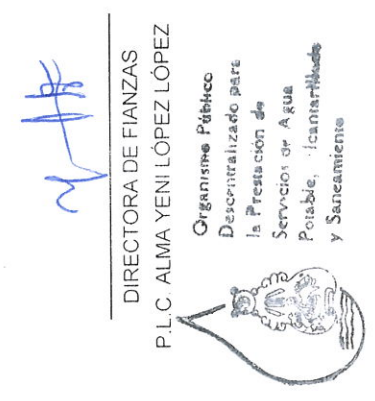 DIRECTORA DE FIANZAS
P.L.C. ALMA YENI LÓPEZ LÓPEZ
Organismo Público
Descentralizado para
la Prestación de
Servicios de Agua
Potable,
y Saneamiento